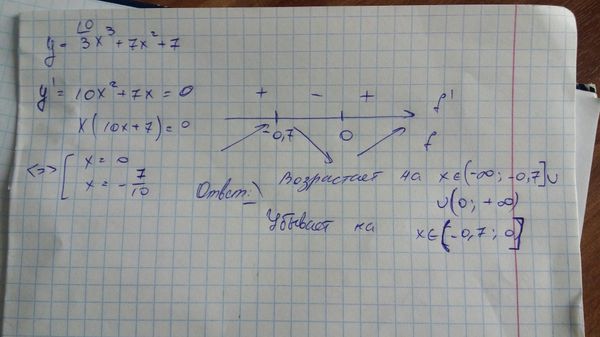 y = 10/3 x³ + 7x² + 7
y' = 10x² + 7x = 0
x(10x+7) = 0
<=> [ x = 0
x = -7/10
+ - + f'
-0,7 0 f
Ответ: Возрастает на x∈(-∞; -0,7]∪
∪(0; +∞)
Убывает на x∈[-0,7; 0]